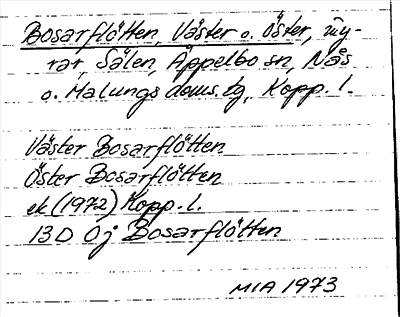 Bosarflötten, Väster o. Öster, my-
rar, Sälen, Äppelbo sn, Nås
o. Malungs doms. tg, Kopp. l.
Väster Bosarflötten
Öster Bosarflötten
ek (1972) Kopp. l.
13D 0j Bosarflötten
MIA 1973